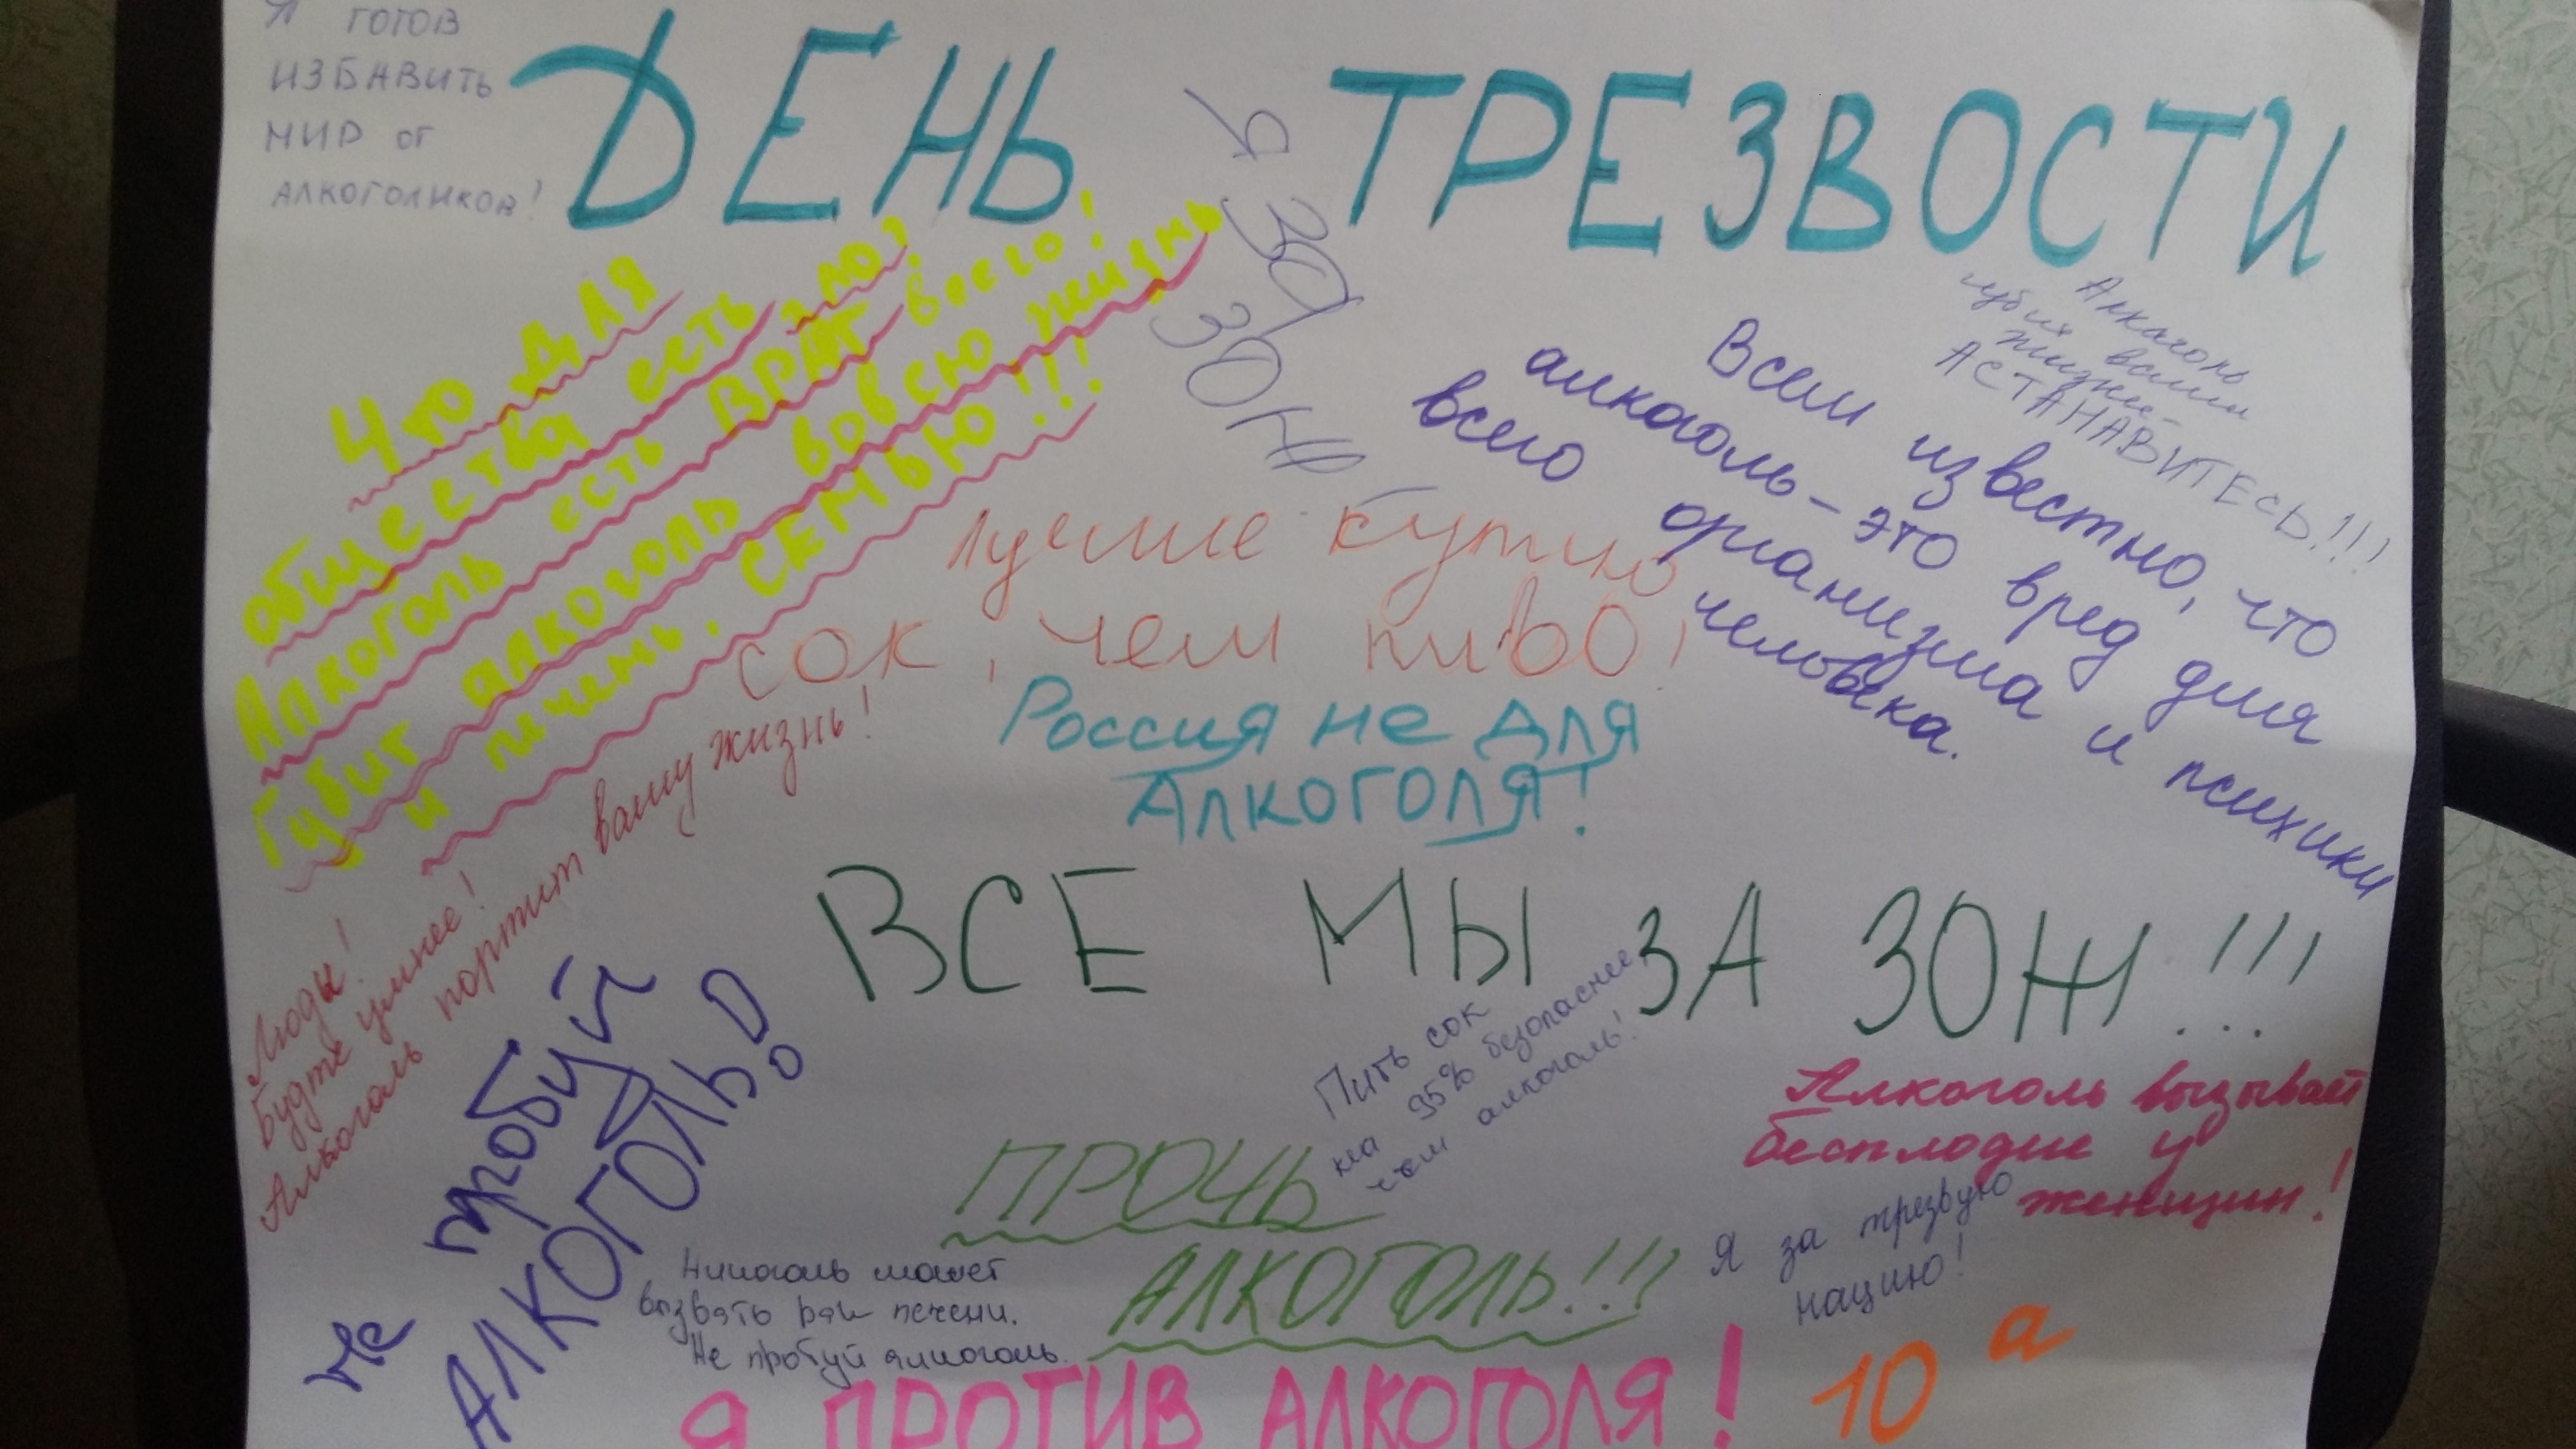 Я ГОТОВ
ИЗБАВИТЬ
МИР от
АЛКОГОЛИКОВ!
ДЕНЬ ТРЕЗВОСТИ
Что для
общества есть зло?
Алкоголь есть ВРАГ всего!
Губит алкоголь вовсю жизнь
и печень, СЕМЬЮ!!!
Я ЗА
ЗОЖ
Алкаголь
губит ваши
жизни-
АСТАНАВИТЕСЬ!!!
Всем известно, что
алкоголь - это вред для
всего организма и психики
человека.
Лучше купию
сок, чем пиво!
Россия не для
Алкоголя!
Люди!
Будте умнее!
Алкоголь портит вашу жизнь!
ВСЕ МЫ ЗА ЗОЖ!!!
Не пробуй
АЛКОГОЛЬ!
Пить сок
на 95% безопаснее
чем алкоголь!
Алкоголь вызывает
бесплодие у
женщин!
ПРОЧЬ
АЛКОГОЛЬ!!!
Я за трезвую
нацию!
может
вызвать рак печени.
Не пробуй алкоголь.
Я ПРОТИВ АЛКОГОЛЯ!
10 а